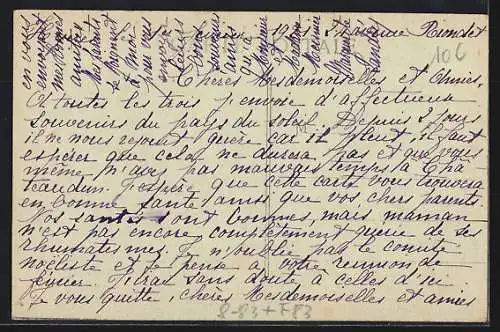 Chères Mesdemoiselles et Amies,
A toutes les trois j'envoie d'affectueux
souvenirs du pays du soleil. Depuis 8 jours
il ne nous réjouit guère car il pleut, il faut
espérer que cela ne durera pas et que vous
même n'avez pas mauvais temps à Châ
teaudun. J'espère que cette carte vous trouvera
en bonne santé ainsi que vos chers parents.
Nos santés sont bonnes, mais maman
n'est pas encore complètement guérie de ses
rhumatismes. Je n'oublie pas le comité
noëliste et je pense à votre réunion de
février. J'irai sans doute à celles d'ici.
Je vous quitte, chères Mesdemoiselles et amies
en vous
envoyant
mes bonnes
amitiés
106
8-83+783